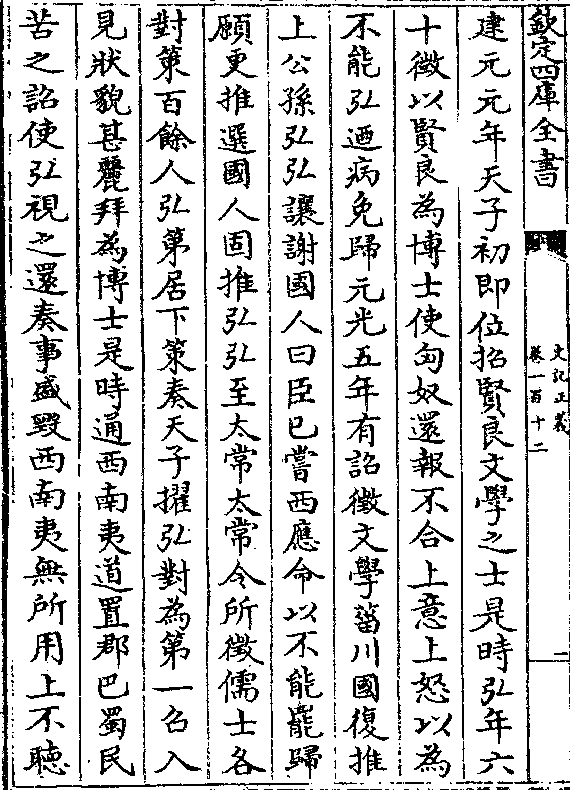 欽定四庫全書
史記正義
卷一百十二
一
建元元年天子初即位招賢良文學之士是時弘年六
十徵以賢良為博士使匈奴還報不合上意上怒以為
不能弘迺病免歸元光五年有詔徵文學菑川國復推
上公孫弘弘讓謝國人曰臣已嘗西應命以不能罷歸
願更推選國人固推弘弘至太常太常令所徵儒士各
對策百餘人弘第居下策奏天子擢弘對為第一召入
見狀貌甚麗拜為博士是時通西南夷道置郡巴蜀民
苦之詔使弘視之還奏事盛毀西南夷無所用上不聽